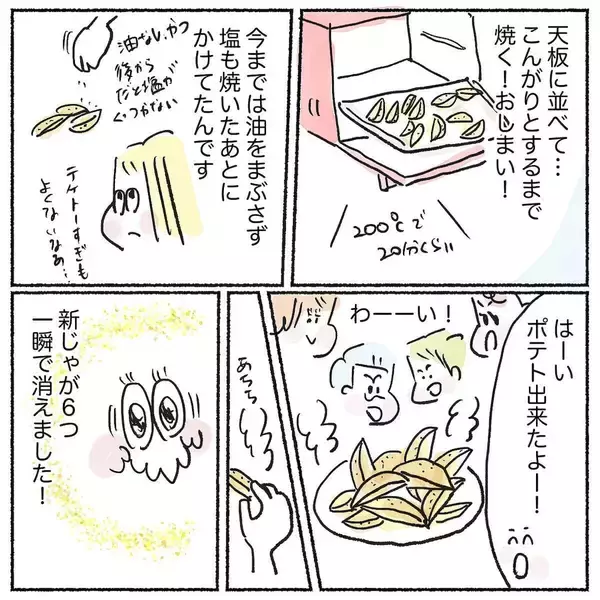 天板に並べて…
こんがりとするまで
焼く！おしまい！
200℃で
20分くらい
今までは油をまぶさず
塩も焼いたあとに
かけてたんです
油なしかつ
後から
だと塩が
くっつかない
テキトーすぎも
よくないなあ…
はーい
ポテト出来たよー！
わーーい！
あちち
新じゃが6つ
一瞬で消えました！